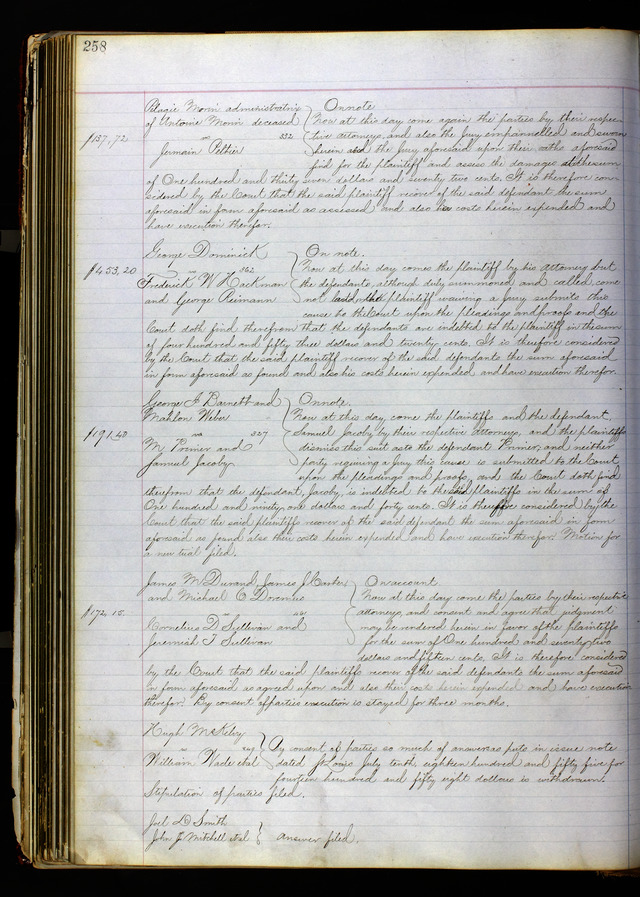 258
Pelagie Morin administratrix } On note
of Antoine Morin deceased } Now at this day come again the parties by their respec-
$137,72 vs 332 } tive attorneys, and also the Jury empannelled and sworn
Jermain Peltier } herein and the Jury aforesaid upon their oaths aforesaid
find for the plaintiff and assess the damages at the sum
of One hundred and thirty seven dollars and seventy two cents. It is therefore con-
sidered by the Court that the said plaintiff recover of the said defendant the sum
aforesaid in form aforesaid as assessed and also her costs herein expended and
have execution therefor.
George Dominick } On note.
$453,20 vs 362 } Now at this day comes the plaintiff by his attorney but
Frederick W Hackman } the defendants, although duly summoned and called come
and George Reimann } not and the plaintiff waiving a jury submits this
cause to the Court upon the pleadings and proofs and the
Court doth find therefrom that the defendants are indebted to the plaintiff in the sum
of four hundred and fifty three dollars and twenty cents. It is therefore considered
by the Court that the said plaintiff recover of the said defendants the sum aforesaid
in form aforesaid as found and also his costs herein expended and have execution therefor.
George F Barnett and } On note.
Mahlon Weber } Now at this day, come the plaintiffs and the defendant,
$191.40 vs 327 } Samuel Jacoby by their respective attorneys, and the plaintiffs
M Primer and } dismiss this suit as to the defendant Primer, and neither
Samuel Jacoby } party requiring a jury this cause is submitted to the Court
upon the pleadings and proofs, and the Court doth find
therefrom that the defendant, Jacoby, is indebted to the said plaintiffs in the sum of
One hundred and ninety one dollars and forty cents. It is therefore considered by the
Court that the said plaintiffs recover of the said defendant the sum aforesaid in form
aforesaid as found also their costs herein expended and have execution therefor. Motion for
a new trial filed.
James M Durand, James J Carter } On account
and Michael C Doremus } Now at this day come the parties by their respective
$172.15. vs } attorneys, and consent and agree that judgment
Cornelius D Sullivan and } may be rendered herein in favor of the plaintiffs
Jeremiah T Sullivan } for the sum of One hundred and seventy two
dollars and fifteen cents. It is therefore considered
by the Court that the said plaintiffs recover of the said defendants the sum aforesaid
in form aforesaid as agreed upon and also their cost herein expended and have execution
therefor. By consent of parties execution is stayed for three months.
Hugh McKelvy
vs } By consent of parties so much of answer as puts in issue note
William Wade et al } dated St. Louis July tenth, eighteen hundred and fifty five for
fourteen hundred and fifty eight dollars is withdrawn.
Stipulation of parties filed.
Joel D Smith
John J Mitchell et al } Answer filed.